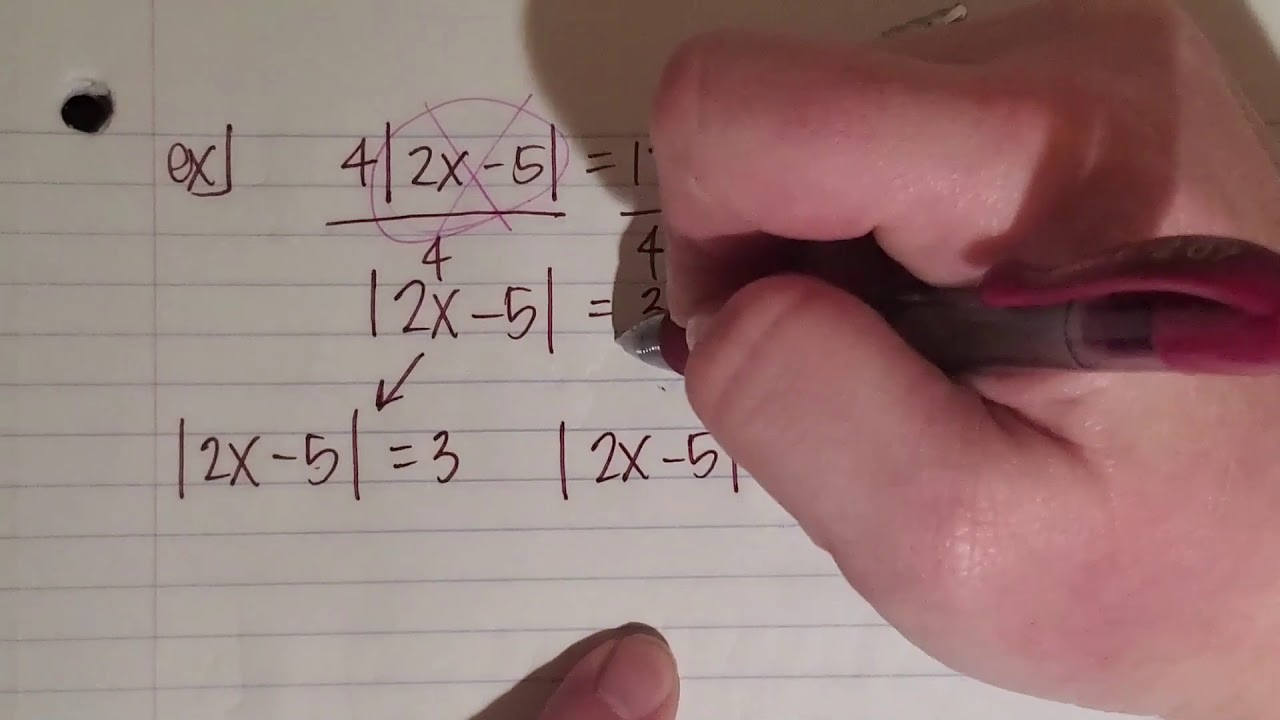 ex] 4|2x-5| = 1
4 4
|2x-5| = 3
|2x-5| = 3 |2x-5|